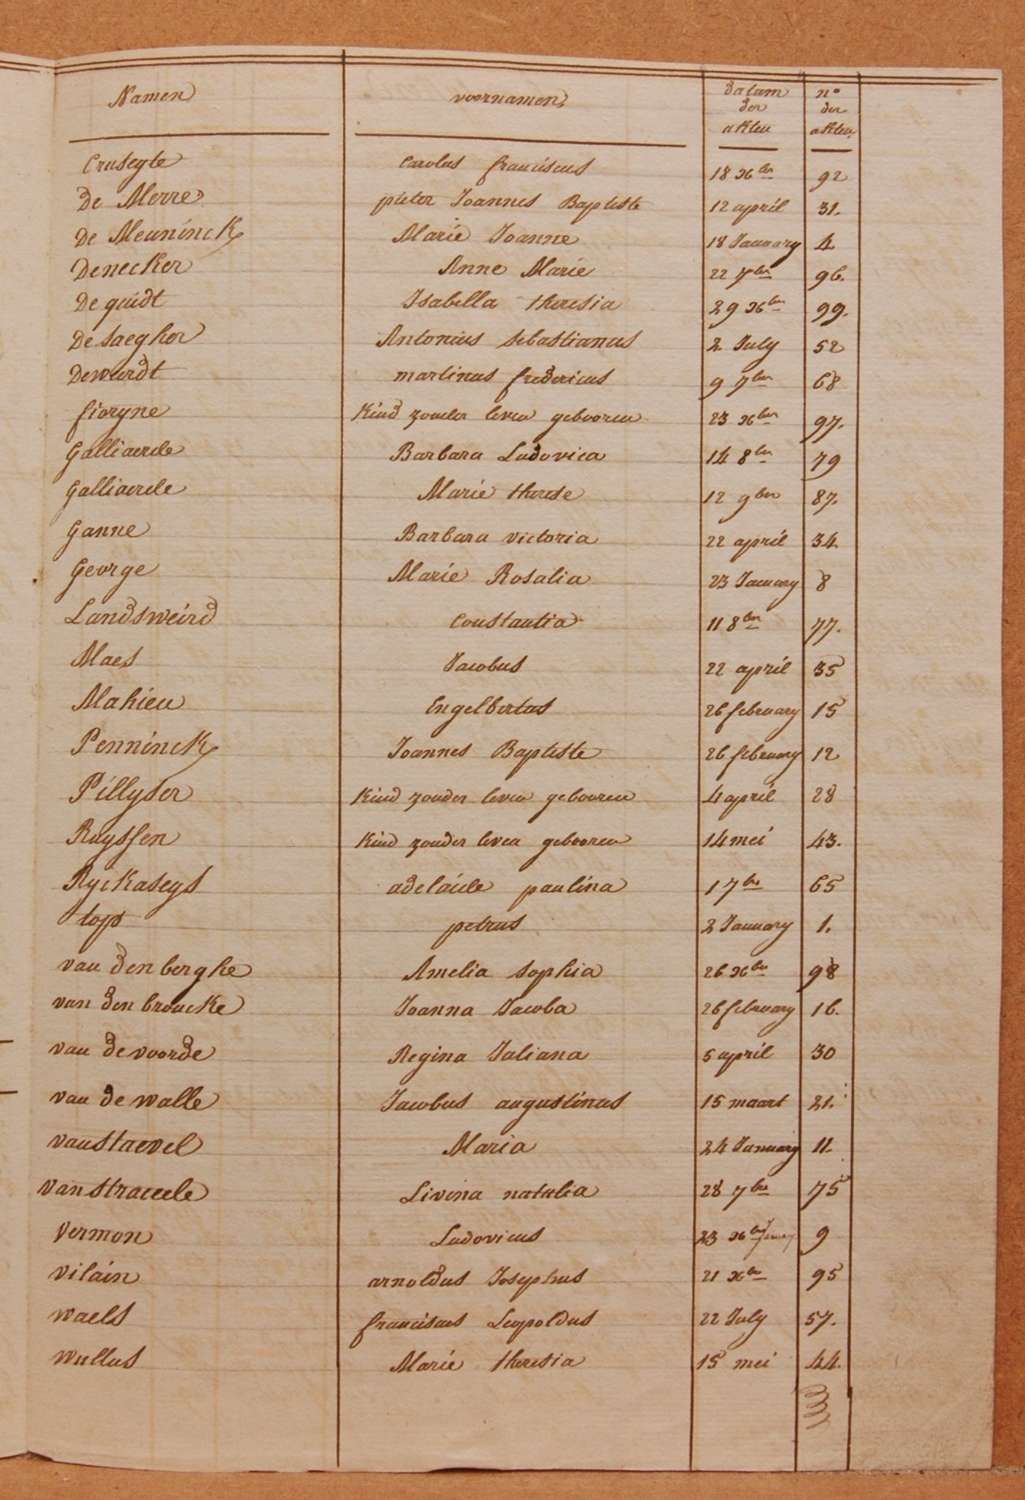 Namen voornamen datum der akten n° der akten
Cruseyte Carolus franciscus 18 Xber 92
De Merre pieter Joannes Baptiste 12 april 31.
De Meuninck Marie Joanne 18 January 4
Denecker Anne Marie 22 7ber 96.
De quidt Isabella theresia 29 Xber 99.
De Saegher Antonius Sebastianus 2 July 52
Dewerdt martinus fredericus 9 7ber 68
fioryne Kind zonder leven gebooren 23 Xber 97.
Galliaerde Barbara Ludovica 14 8ber 79
Galliaerde Marie therese 12 9ber 87.
Ganne Barbara victoria 22 april 34.
George Marie Rosalia 23 January 8
Landsweird Constantia 11 8ber 77.
Maes Jacobus 22 april 35
Mahieu Engelbertus 26 february 15
Penninck Joannes Baptiste 26 february 12
Pillyser Kind zonder leven gebooren 4 april 28
Ruyssen Kind zonder leven gebooren 14 mei 43.
Ryckaseys adelaide paulina 1 7bre 65
tops petrus 2 January 1.
van den berghe Amelia Sophia 26 Xbre 98
van den broucke Joanna Jacoba 26 february 16.
van de voorde Regina Juliana 5 april 30
van de walle Jacobus augustinus 15 maart 21.
vanstaevel Maria 24 January 11.
vanstraeele Livina natalia 28 7bre 75
vermon Ludovicus 23 9
vilain arnoldus Josephus 21 Xbre 95
waels franciscus Leopoldus 22 July 57.
wullus Marie theresia 15 mei 44.